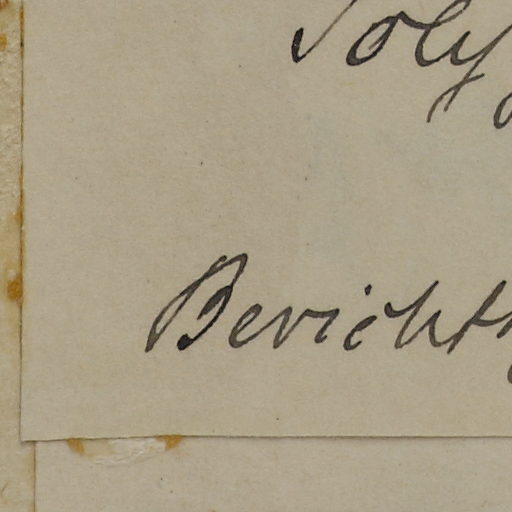 Poly
Bericht